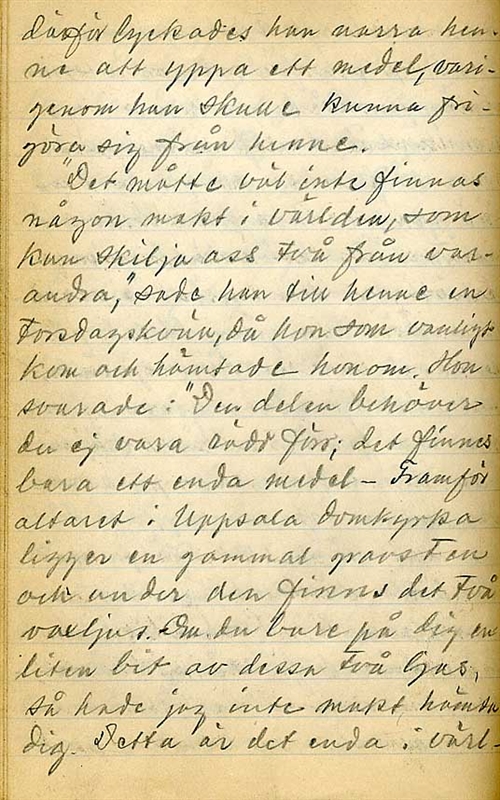 därför lyckades han narra hen-
ne att yppa ett medel, vari-
genom han skulle kunna fri-
göra sig från henne.
"Det måtte väl inte finnas
någon makt i världen, som
kan skilja oss två från var-
andra," sade han till henne en
Torsdagskväll, då hon som vanligt
kom och hämtade honom. Hon
svarade: "Den delen behöver
du ej vara rädd för; det finnes
bara ett enda medel – Framför
altaret i Uppsala domkyrka
ligger en gammal gravsten
och under den finns det två
vaxljus. Om du bure på dig en
liten bit av dessa två ljus,
så hade jag inte makt hämta
dig. Detta är det enda i värl-